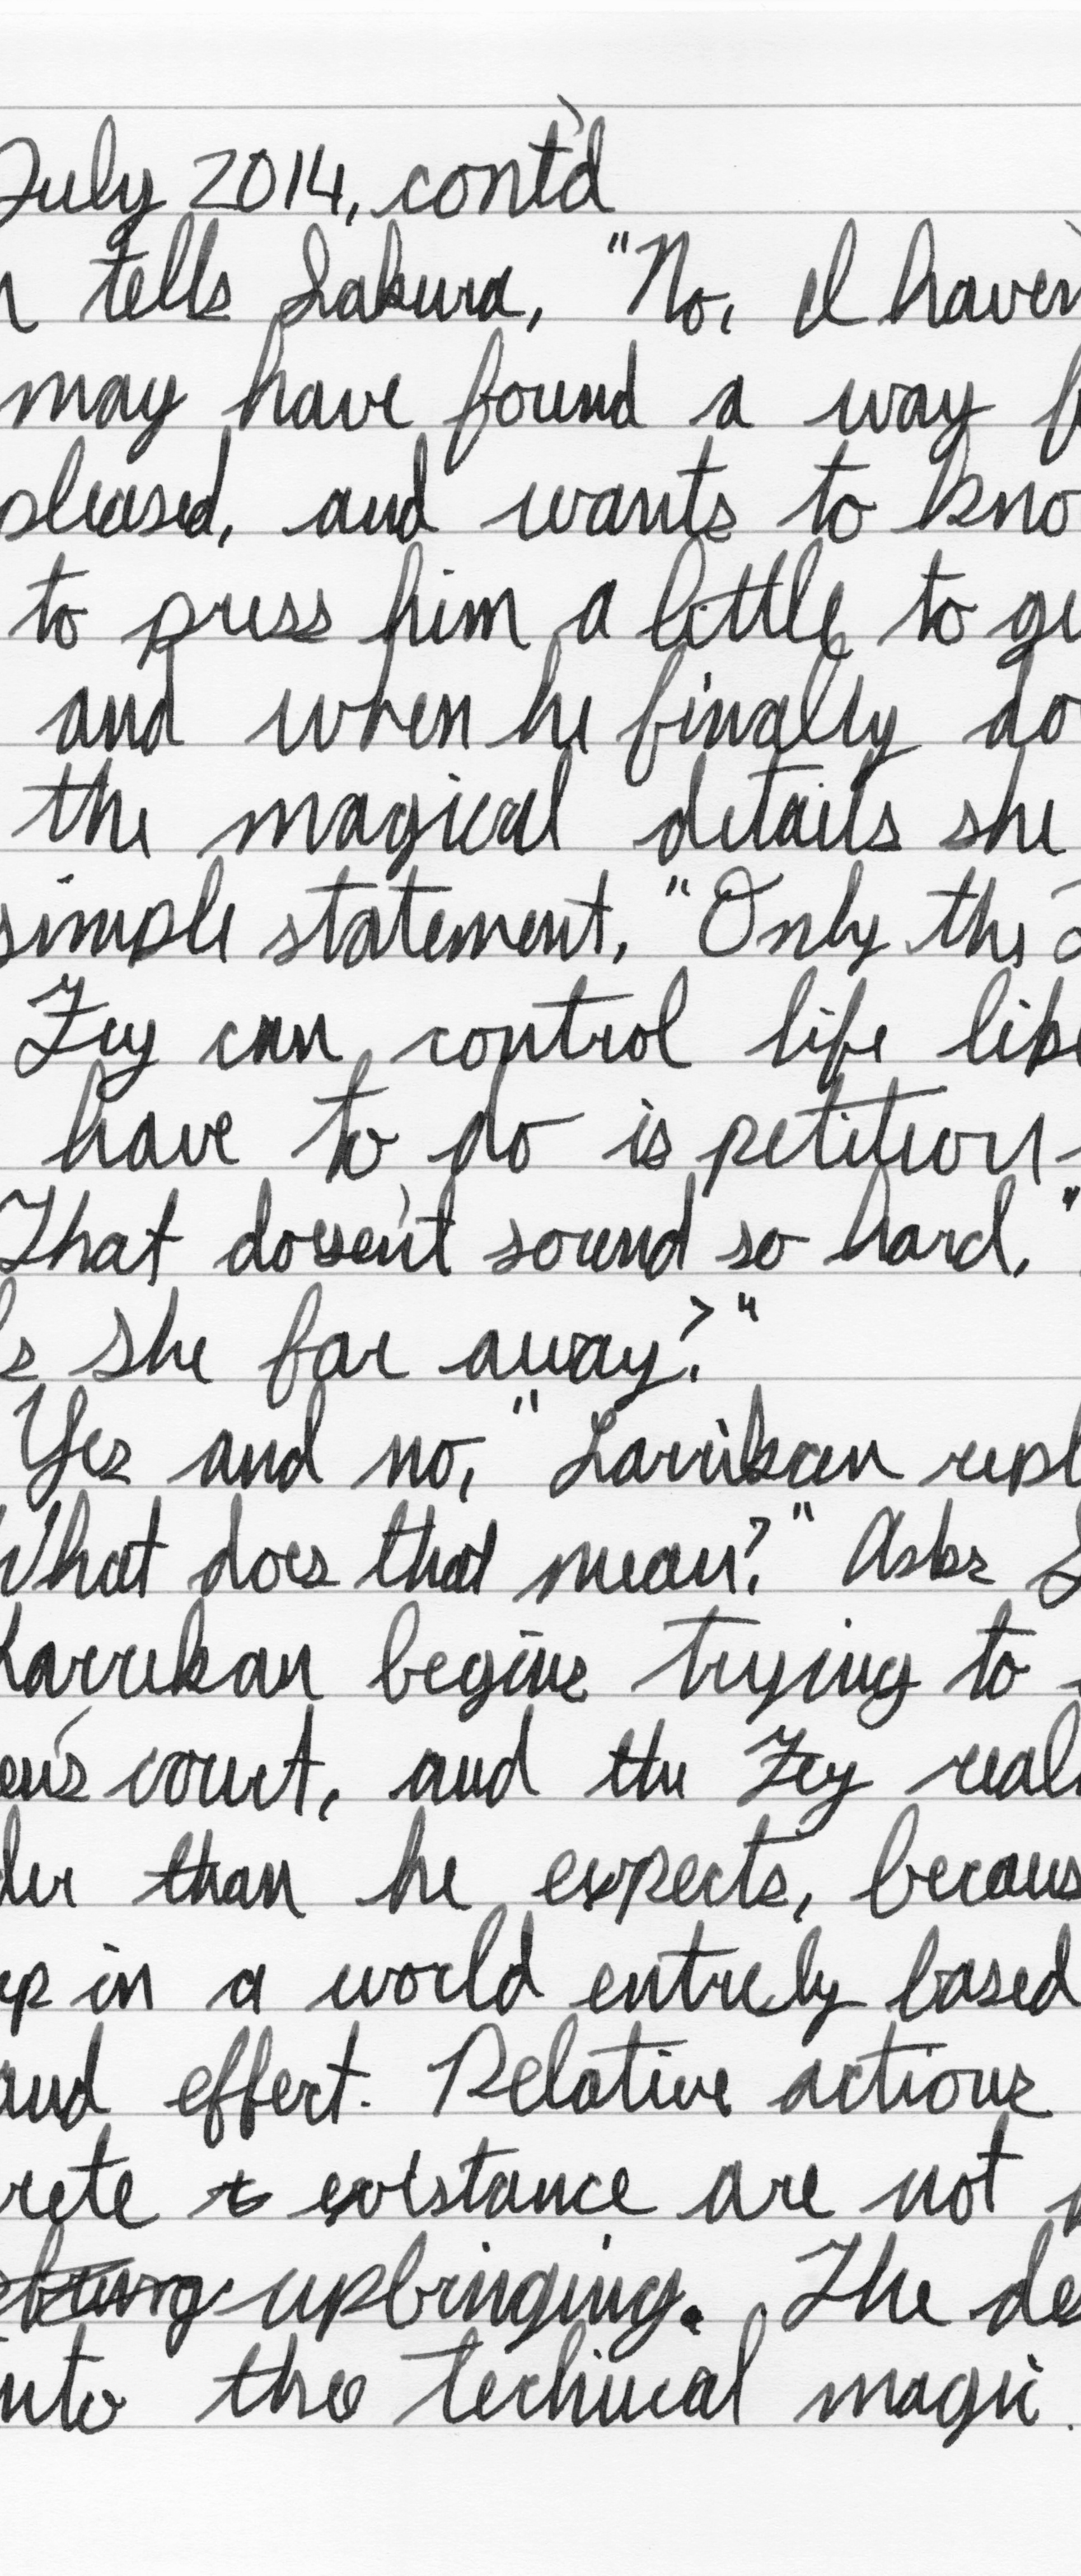 July 2014, cont'd
tells Sakura, "No, I haven
may have found a way f
pleased, and wants to kno
to press him a little to ge
and when he finally do
the magical details she
simple statement, "Only the
Fey can control life like
have to do is petition
That doesn't sound so hard,"
she far away?"
Yes and no," Larrikan repl
What does that mean?" Asks S
Larrikan begins trying to
en's court, and the Fey real
der than he expects, becaus
up in a world entirely based
and effect. Relative actions
rete existance are not
upbringing. The de
into the technical magic.